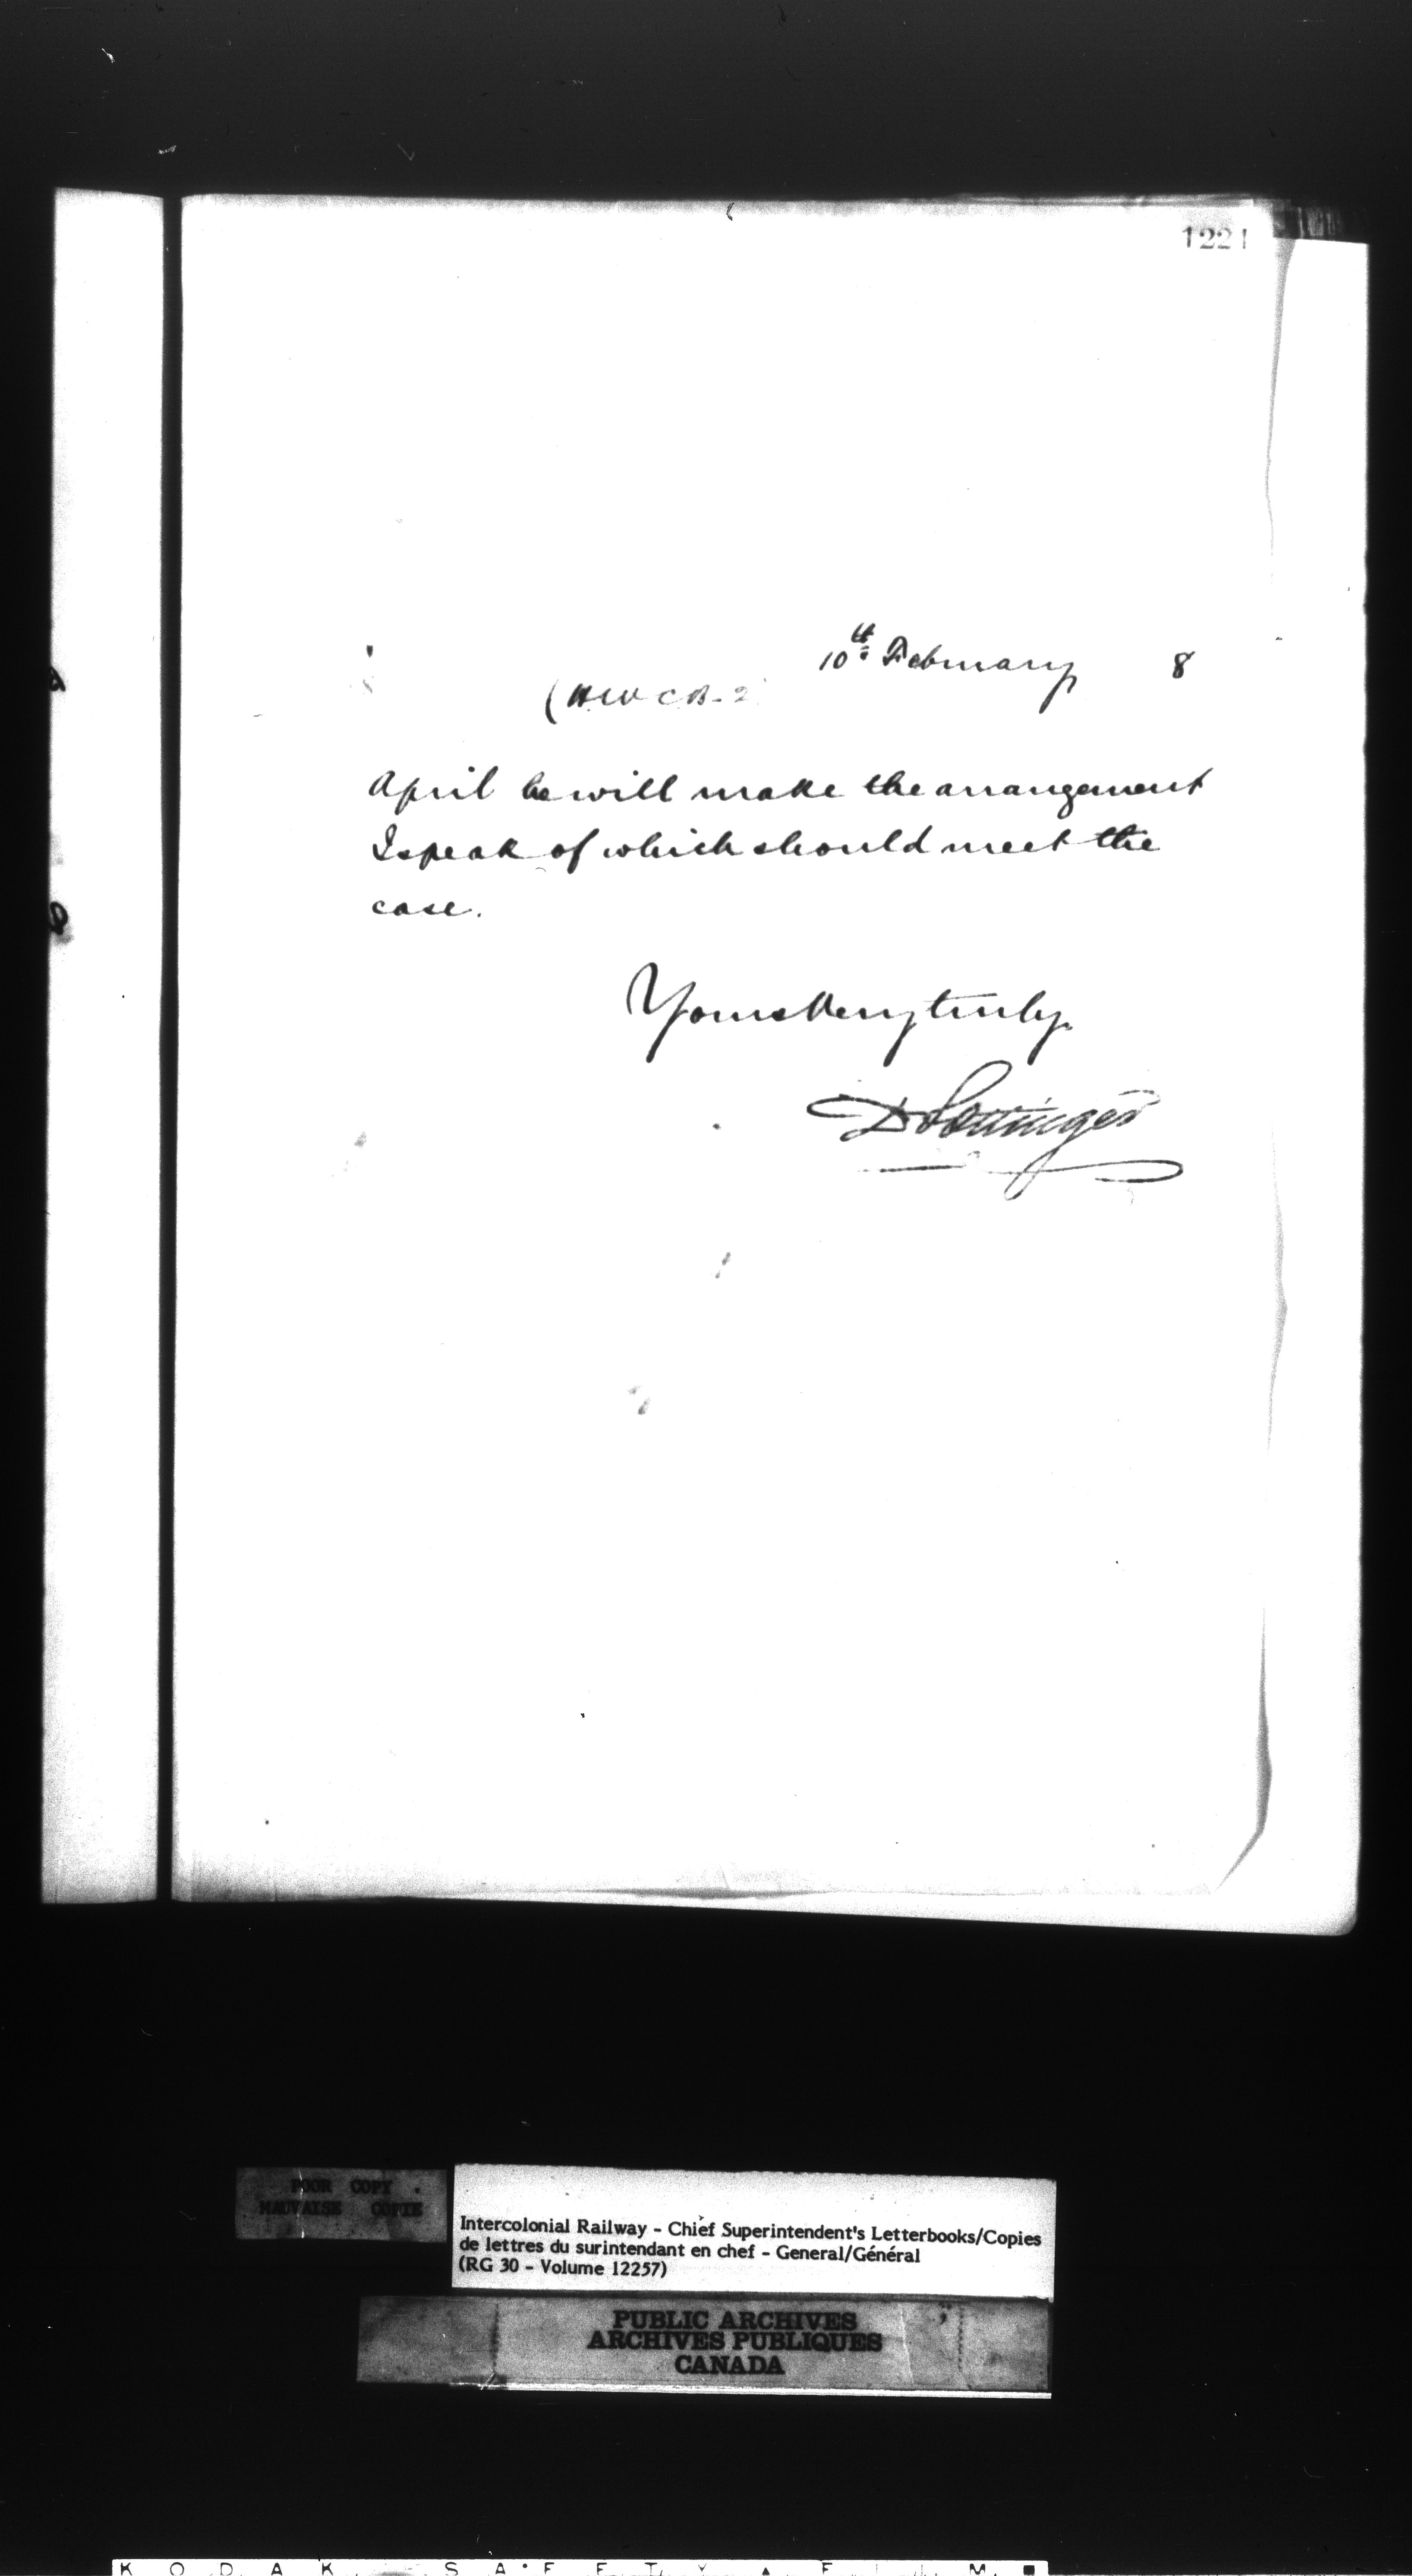 1221
10th February 8
(HWCB-2)
April he will make the arrangement
I speak of which should meet the
case.
Yours Very truly.
D Pottinger
POOR COPY
MAUVAISE COPIE
Intercolonial Railway - Chief Superintendent's Letterbooks/Copies
de lettres du surintendant en chef - General/Général
(RG 30 - Volume 12257)
PUBLIC ARCHIVES
ARCHIVES PUBLIQUES
CANADA
KODAK SAFETY FILM